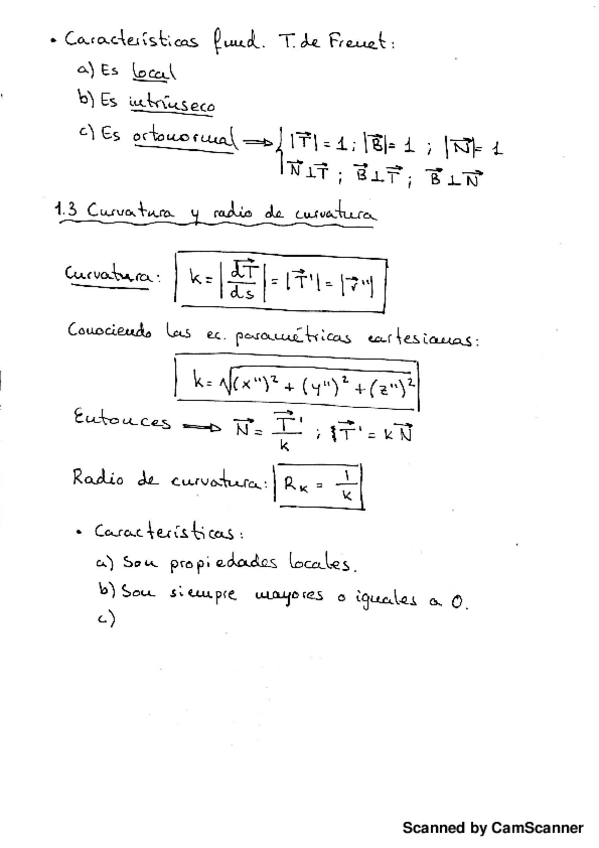 • Características fund. T. de Frenet:
a) Es local
b) Es intrínseco
c) Es ortonormal ⟹ { |T⃗| = 1 ; |B⃗| = 1 ; |N⃗| = 1
N⃗ ⊥ T⃗ ; B⃗ ⊥ T⃗ ; B⃗ ⊥ N⃗
1.3 Curvatura y radio de curvatura
Curvatura: k = |dT⃗/ds| = |T⃗'| = |r⃗''|
Conociendo las ec. paramétricas cartesianas:
k = √((x'')² + (y'')² + (z'')²)
Entonces ⟹ N⃗ = T⃗'/k ; T⃗' = k N⃗
Radio de curvatura: Rₖ = 1/k
• Características:
a) Son propiedades locales.
b) Son siempre mayores o iguales a 0.
c)
Scanned by CamScanner